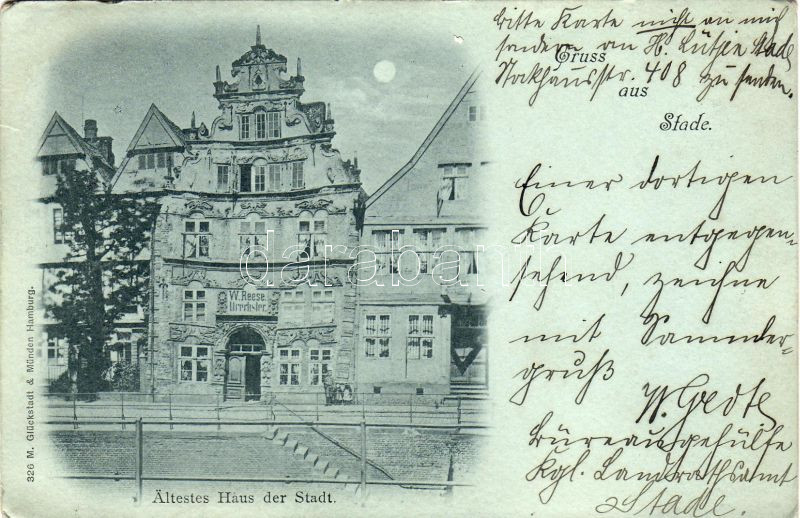 Bitte Karte nicht an mich
sondern an H. Lütjen Stade
408 zu senden.
Gruss
aus
Stade.
Einer dortigen
Karte entgegen-
sehend, zeichne
mit Sammler-
gruß
W.
Büreaugehülfe
Kgl. Landrathsamt
Stade.
W. Reese.
Drechsler.
darabanth
326 M. Glückstadt & Münden Hamburg.
Ältestes Haus der Stadt.